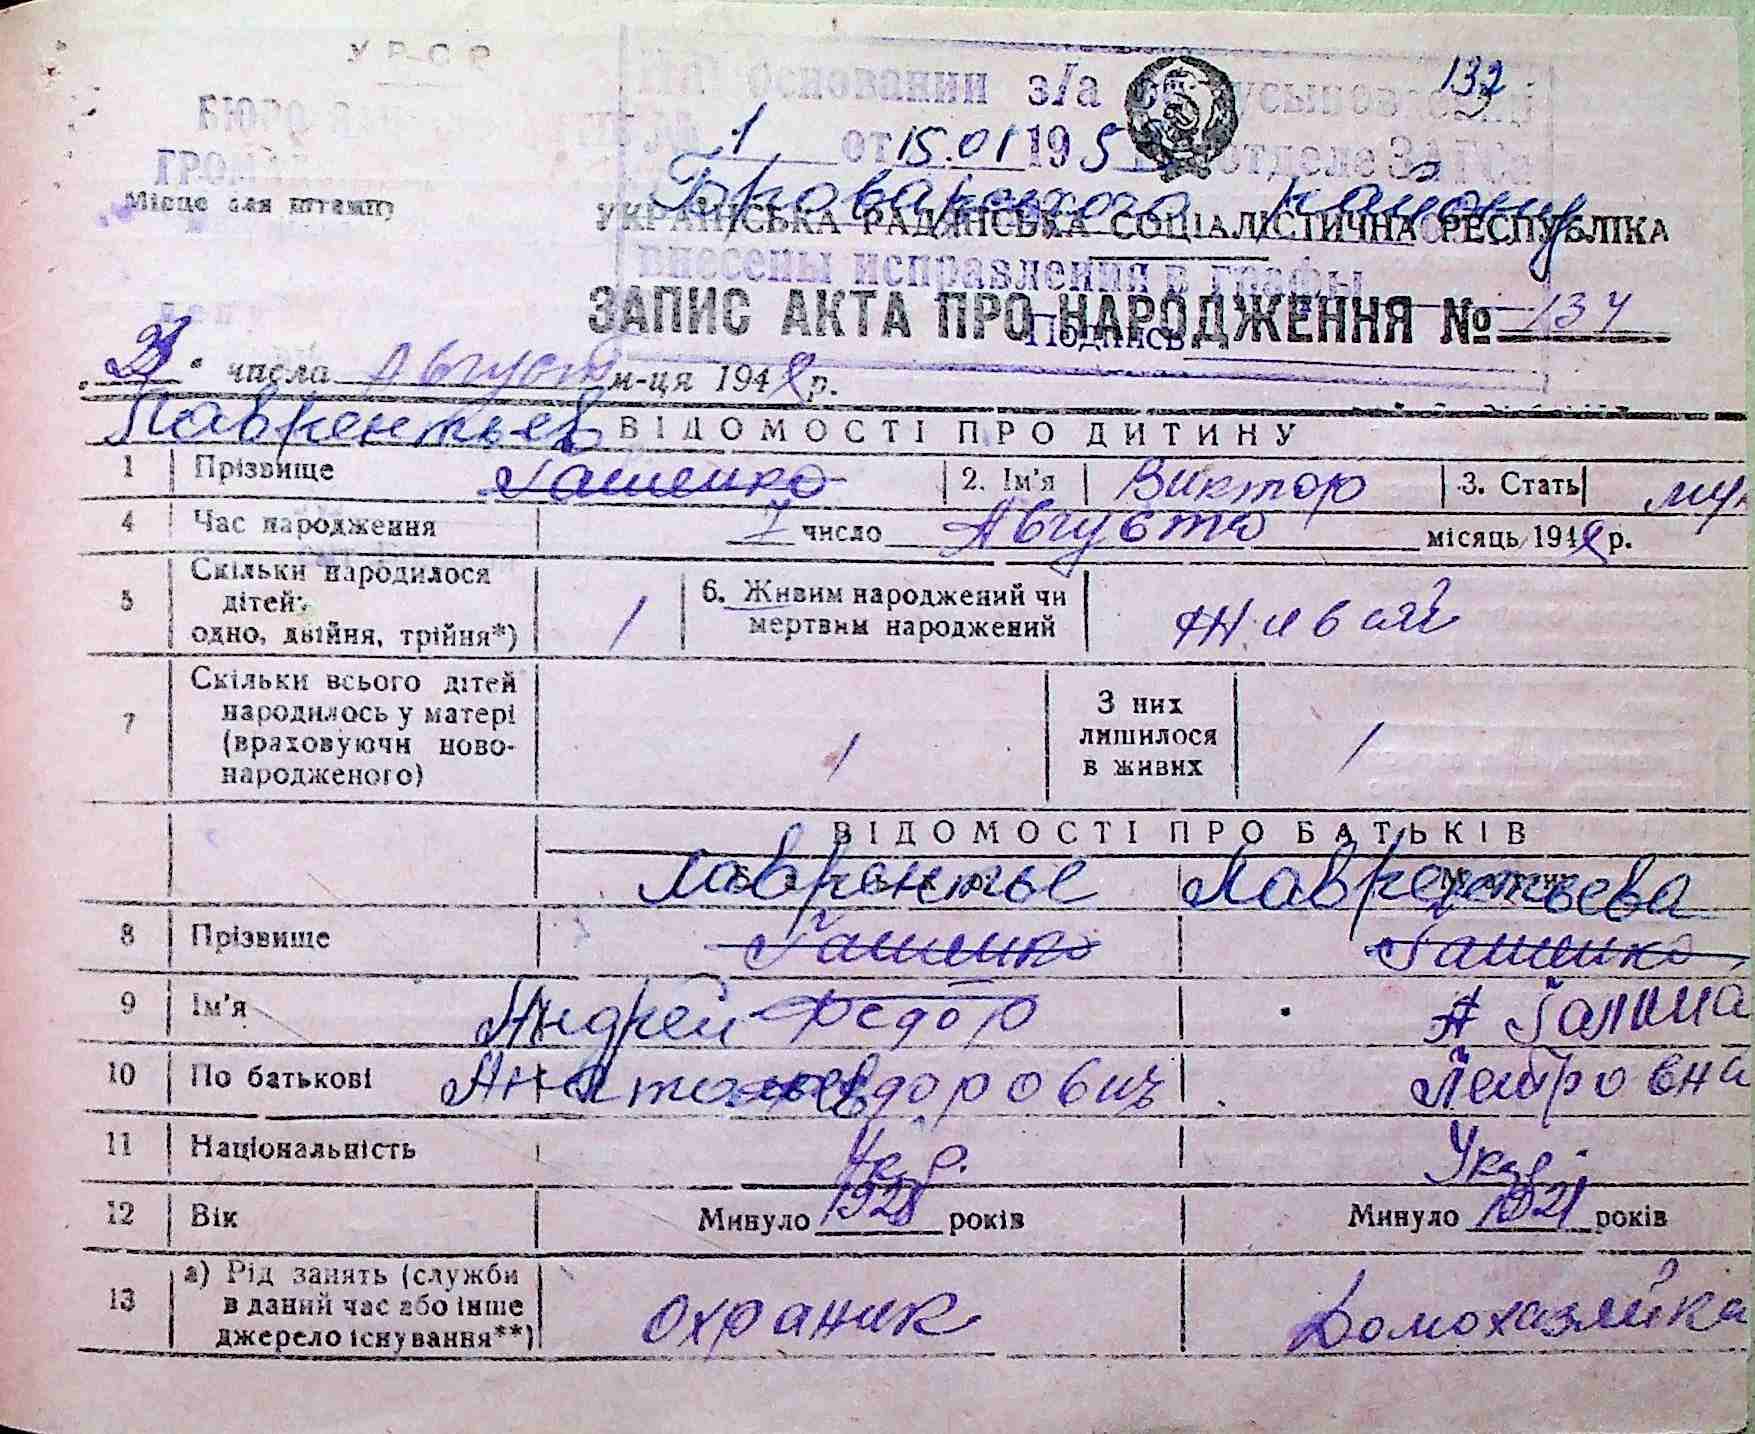 У Р С Р
132
На основании з/а об усыновлении
БЮРО
№ 1 от 15.01 195 отделе ЗАГСа
ГРОМАД
Місце для штампу
Броварского району
УКРАЇНСЬКА РАДЯНСЬКА СОЦІАЛІСТИЧНА РЕСПУБЛІКА
внесены исправления в графы
ЗАПИС АКТА ПРО НАРОДЖЕННЯ № 134
Подпись
числа Август м-ця 194 р.
Лаврентьев
ВІДОМОСТІ ПРО ДИТИНУ
1 Прізвище Гашенко 2. Ім'я Виктор 3. Стать муж
4 Час народження 7 число Августа місяць 194 р.
5 Скільки народилося дітей: одно, двійня, трійня*) 1 6. Живим народжений чи мертвим народжений живой
7 Скільки всього дітей народилось у матері (враховуючи ново-народженого) 1 З них лишилося в живих 1
ВІДОМОСТІ ПРО БАТЬКІВ
Лаврентье Лаврентьева
8 Прізвище Гашенко Гашенко
9 Ім'я Андрей Федор Галина
10 По батькові Анатольев дорович Петровна
11 Національність Укр. Укр.
12 Вік Минуло 1928 років Минуло 1921 років
13 а) Рід занять (служби
в даний час або інше
джерело існування**) охраник Домохазяйка